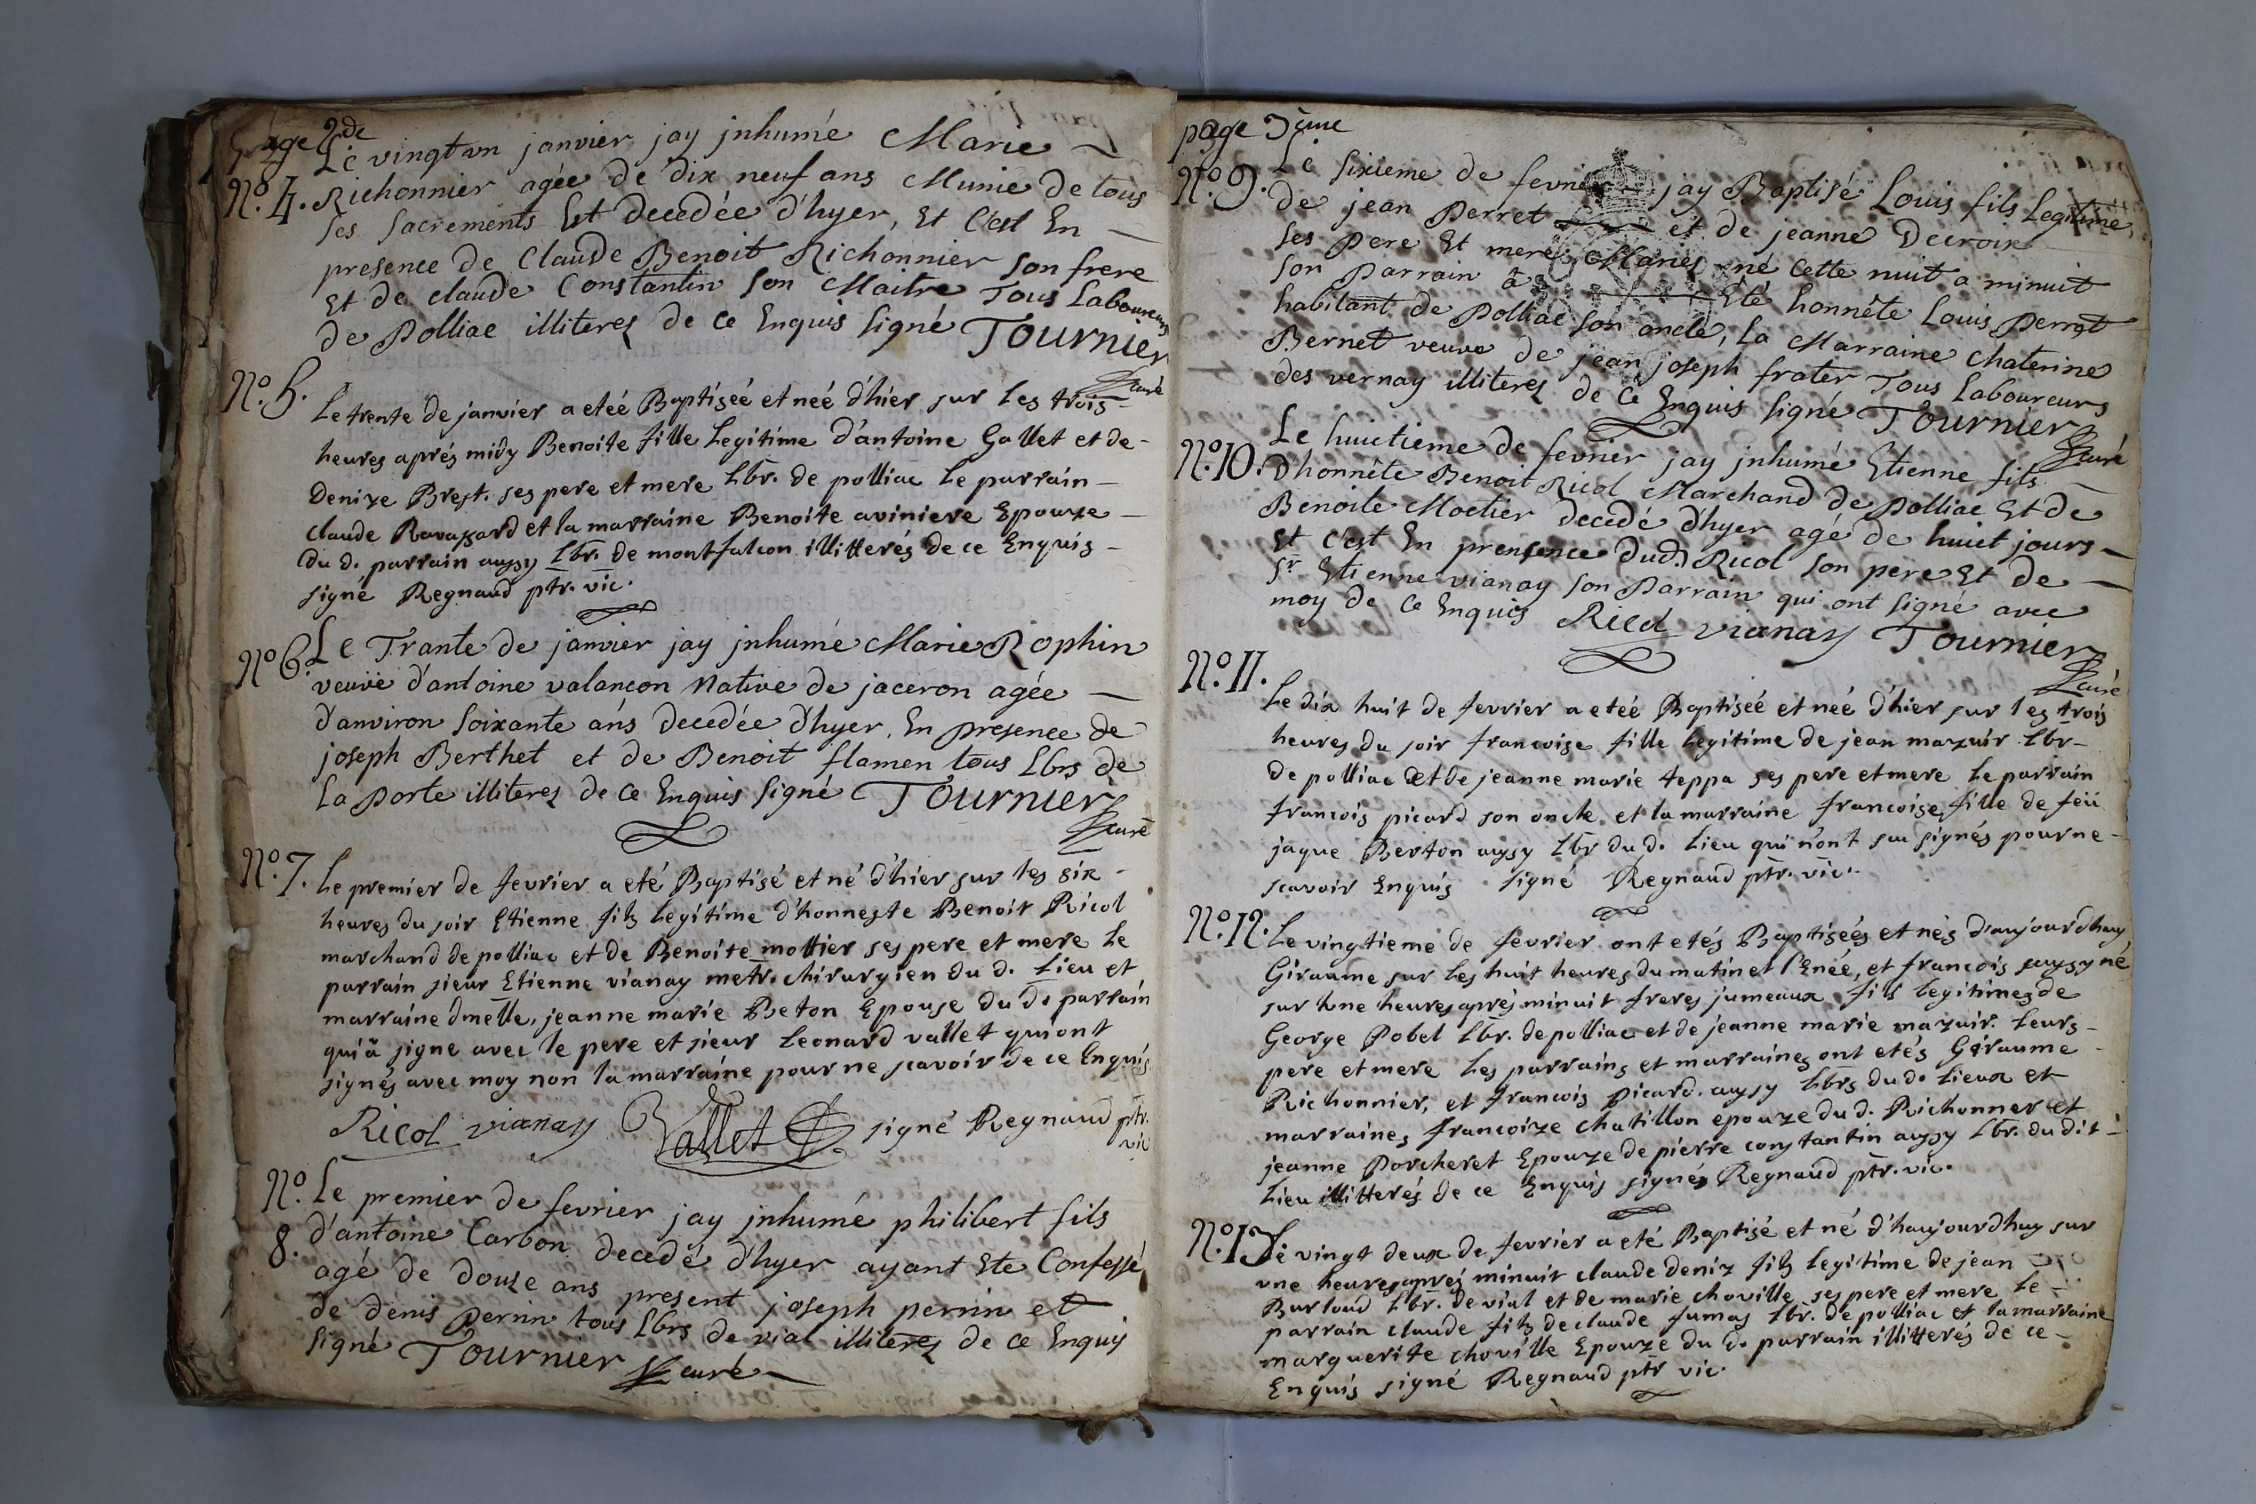 page 2de
Le vingt un janvier jay jnhumé Marie
No. 4. Richonnier agée de dix neuf ans Munie de tous
ses sacrements Est decedée d'hyer, Et C'est En
presence de Claude Benoit Richonnier son frere
Et de claude Constantin son Maitre Tous Laboureurs
de Polliac illiterez de ce Enquis signé Tournier
curé
No. 5.
Le trente de janvier a eteé Baptiséé et néé d'hier sur les trois
heures aprés midy Benoite fille Legitime d'antoine Gallet et de
Denize Brest. ses pere et mere Lbr. de polliac Le parrain
claude Ravassard et la marraine Benoite aviniere Epouze
du d. parrain aussy Lbr. de montfalcon illitterés de ce Enquis
signé Regnaud ptr. vic.
No 6. Le Trante de janvier jay jnhumé Marie Rophin
veuve d'antoine valancon Native de jaceron agée
d'anviron soixante ans decedée d'hyer. En presence de
joseph Berthet et de Benoit flamen tous Lbrs de
La Porte illiterez de ce Enquis signé Tournier
curé
No. 7. Le premier de fevrier a eté Baptisé et né d'hier sur les six
heures du soir Etienne fils Legitime d'honneste Benoit Ricol
marchand de polliac et de Benoite mottier ses pere et mere Le
parrain sieur Etienne vianay metr. chirurgien du d. Lieu et
marraine dmelle. jeanne marie Beton Epouse du d. parrain
qui à signe avec le pere et sieur Leonard vallet qui ont
signés avec moy non la marraine pour ne scavoir de ce Enquis
Ricol vianay Vallet signé Regnaud ptr.
vic
No. Le premier de fevrier jay jnhumé philibert fils
8. d'antoine Carbon decedé d'hyer ayant Ete Confessé
agé de douze ans present joseph perrin et
de denis Perrin tous Lbrs de vial illiterez de ce Enquis
signé Tournier curé
page 3eme
No. 9. Le sixieme de fevrier jay Baptisé Louis fils Legitime
de jean Perret et de jeanne Decroix
ses Pere Et mere Mariés né cette nuit a minuit
son Parrain à Eté honnête Louis Perret
habitant de Polliac son oncle, La Marraine Chaterine
Bernet veuve de jean joseph frater Tous Laboureurs
des vernay illiterez de ce Enquis signé Tournier
curé
No. 10. Le huictieme de fevrier jay jnhumé Etienne fils
d'honnête Benoit Ricol Marchand de Polliac Et de
Benoite Moctier decedé d'hyer agé de huict jours
Et c'est En prensence dud. Ricol son pere Et de
Sr Etienne vianay son Parrain qui ont signé avec
moy de ce Enquis Ricol vianay Tournier
curé
No. 11.
Le dix huit de fevrier a eteé Baptiséé et néé d'hier sur les trois
heures du soir francoise fille Legitime de jean mazuir Lbr
de polliac et de jeanne marie teppa ses pere et mere Le parrain
francois picard son oncle et la marraine francoise fille de feü
jaque Berton aussy Lbr du d. Lieu qui n'ont su signés pour ne
scavoir Enquis signé Regnaud ptr. vic.
No. 12. Le vingtieme de fevrier ont etés Baptiséés et nés d'aujourdhuy
Giraume sur les huit heures du matin et l'Enée, et francois aussy né
sur hune heures aprés minuit freres jumeaux fils Legitimes de
George Pobel Lbr. de polliac et de jeanne marie mazuir. Leurs
pere et mere Les parrains et marraines ont etés Giraume
Richonnier, et francois Picard. aussy Lbrs du d. Lieux et
marraines francoize chatillon epouze du d. Richonner et
jeanne Porcheret Epouze de pierre constantin aussy Lbr. du dit
Lieu illitterés de ce Enquis signés Regnaud ptr. vic.
No. 13. Le vingt deux de fevrier a eté Baptisé et né d'haujourdhuy sur
une heures aprés minuit claude deniz fils Legitime de jean
Burloud Lbr. de vial et de marie choville ses pere et mere Le
parrain claude fils de claude fumas Lbr. de polliac et la marraine
marguerite choville Epouze du d. parrain illitterés de ce
Enquis signé Regnaud ptr vic.